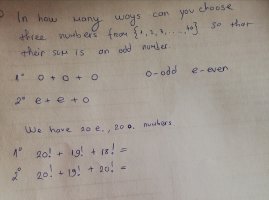 In how many ways can you choose
three numbers from {1,2,3,...,40} so that
their sum is an odd number.
1° o + o + o o-odd e-even
2° e + e + o
We have 20 e., 20 o. numbers
1° 20! + 19! + 18! =
2° 20! + 19! + 20! =